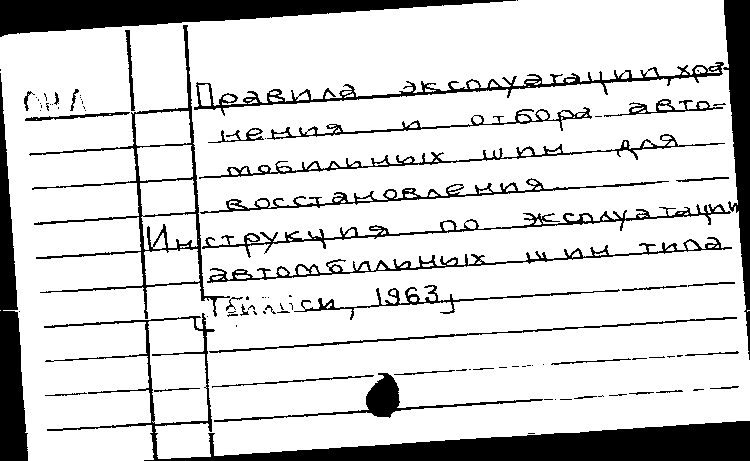 ОНЛ
Правила эксплуатации, хра-
нения и отбора авто-
мобильных шин для
восстановления
Инструкция по эксплуатации
автомбильных шин типа
1963